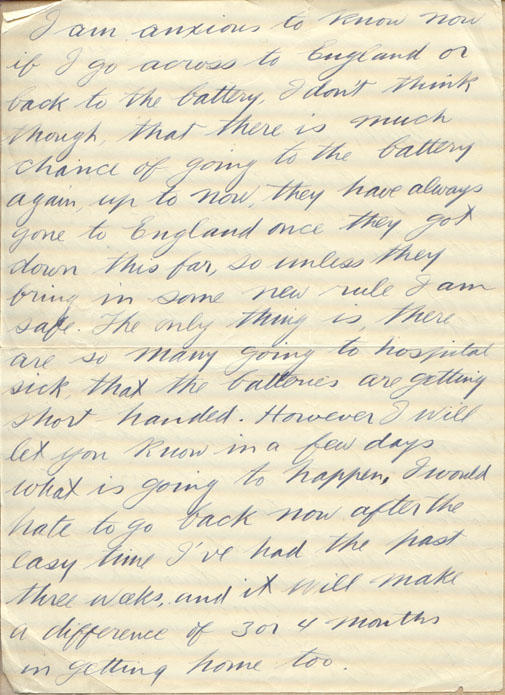 I am anxious to know now
if I go across to England or
back to the battery, I don't think
though, that there is much
chance of going to the battery
again, up to now, they have always
gone to England once they got
down this far, so unless they
bring in some new rule I am
safe. The only thing is, there
are so many going to hospital
sick, that the batteries are getting
short handed. However I will
let you know in a few days
what is going to happen, I would
hate to go back now after the
easy time I've had the past
three weeks, and it will make
a difference of 3 or 4 months
in getting home too.